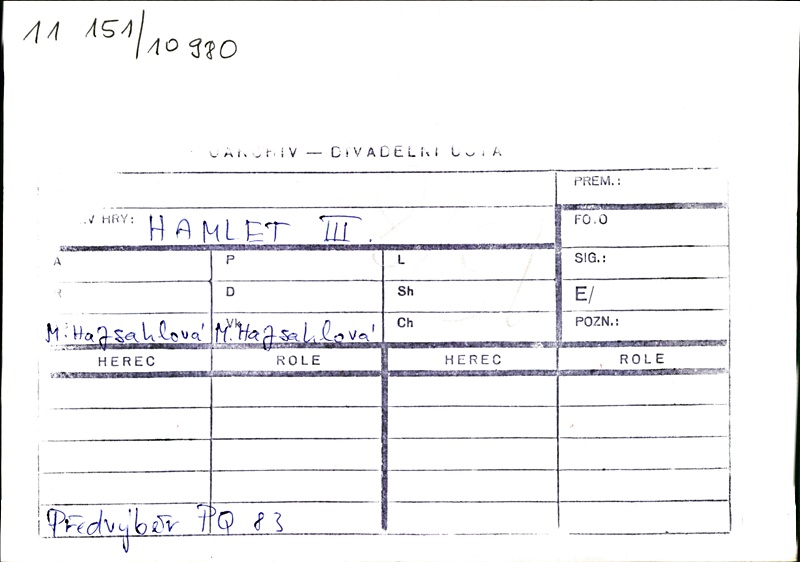 11 151/10 980
DIVADELNÍ
PREM.:
V HRY: HAMLET III.
FOTO
A P L SIG.:
D Sh E/
M. Hajsahlová M. Hajsahlová Ch POZN.:
HEREC ROLE HEREC ROLE
Předvýběr PQ 83